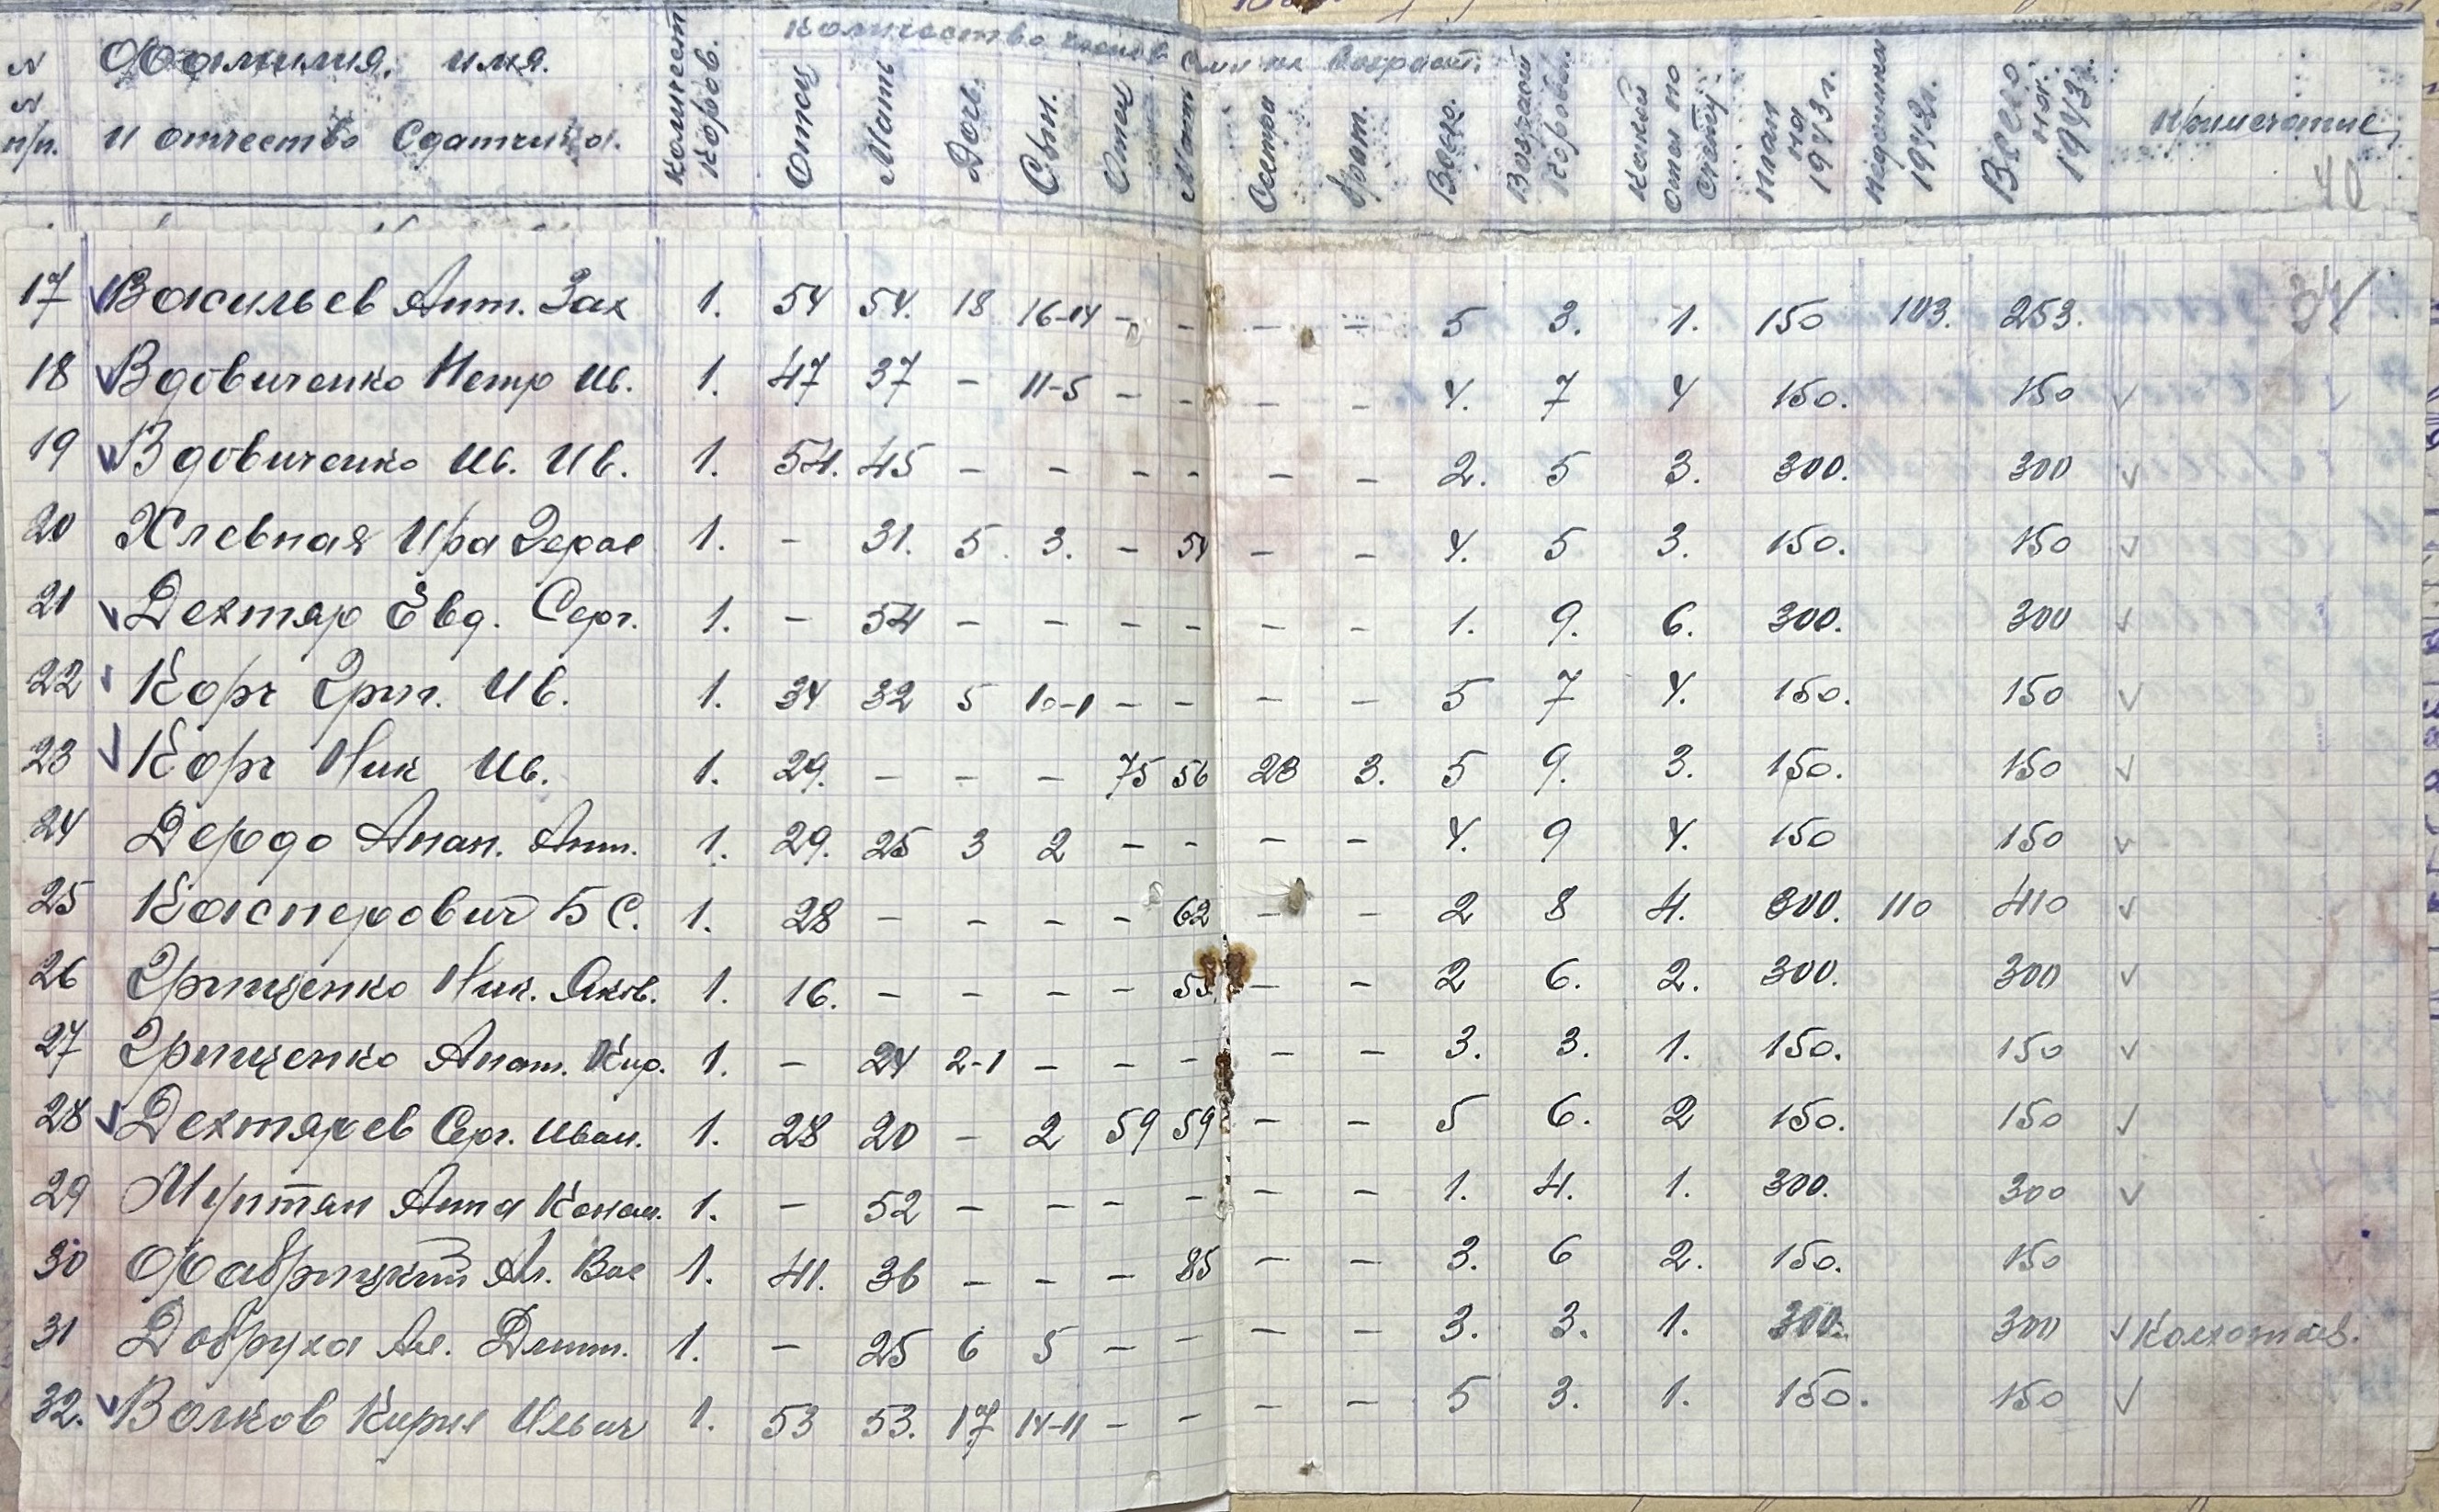 N N п/п. Фамилия, имя. и отчество Сдатчика. Количест Коров. Количество членов семьи их возраст. Отец Мать Дочь Сын. Отец Мать Сестра Брат. Всего. Возраст Коровы. Какой отел по счету План на 1943 г. Недоимка 1942 г. Всего на 1943 г. Примечание
40
34
17 Васильев Ант. Зах 1. 54 54. 18 16-14 - - - - 5 3. 1. 150 103. 253.
18 Вдовиченко Петр Ив. 1. 47 37 - 11-5 - - - - 4. 7 4 150. 150
19 Вдовиченко Ив. Ив. 1. 54. 45 - - - - - - 2. 5 3. 300. 300
20 Хлевная Ира Герас 1. - 31. 5 3. - 54 - - 4. 5 3. 150. 150
21 Дехтяр Евд. Серг. 1. - 54 - - - - - - 1. 9. 6. 300. 300
22 Корч Григ. Ив. 1. 34 32 5 10-1 - - - - 5 7 4. 150. 150
23 Корч Ник Ив. 1. 29. - - - 75 56 23 3. 5 9. 3. 150. 150
24 Дердо Анан. Ант. 1. 29. 25 3 2 - - - - 4. 9 4. 150 150
25 Касперович Б С. 1. 28 - - - - 62 - - 2 8 4. 300. 110 410
26 Грищенко Ник. Яков. 1. 16. - - - - 55. - - 2 6. 2. 300. 300
27 Грищенко Анат. Кир. 1. - 24 2-1 - - - - - 3. 3. 1. 150. 150
28 Дехтярев Серг. Иван. 1. 28 20 - 2 59 59 - - 5 6. 2 150. 150
29 Мунтян Анна Конан. 1. - 52 - - - - - - 1. 4. 1. 300. 300
30 Фабрицкий Ал. Вас 1. 41. 36 - - - 85 - - 3. 6 2. 150. 150
31 Добруха Ал. Дмит. 1. - 25 6 5 - - - - 3. 3. 1. 300. 300
32. Волков Кирил Ильич 1. 53 53. 17 14-11 - - - - 5 3. 1. 150. 150